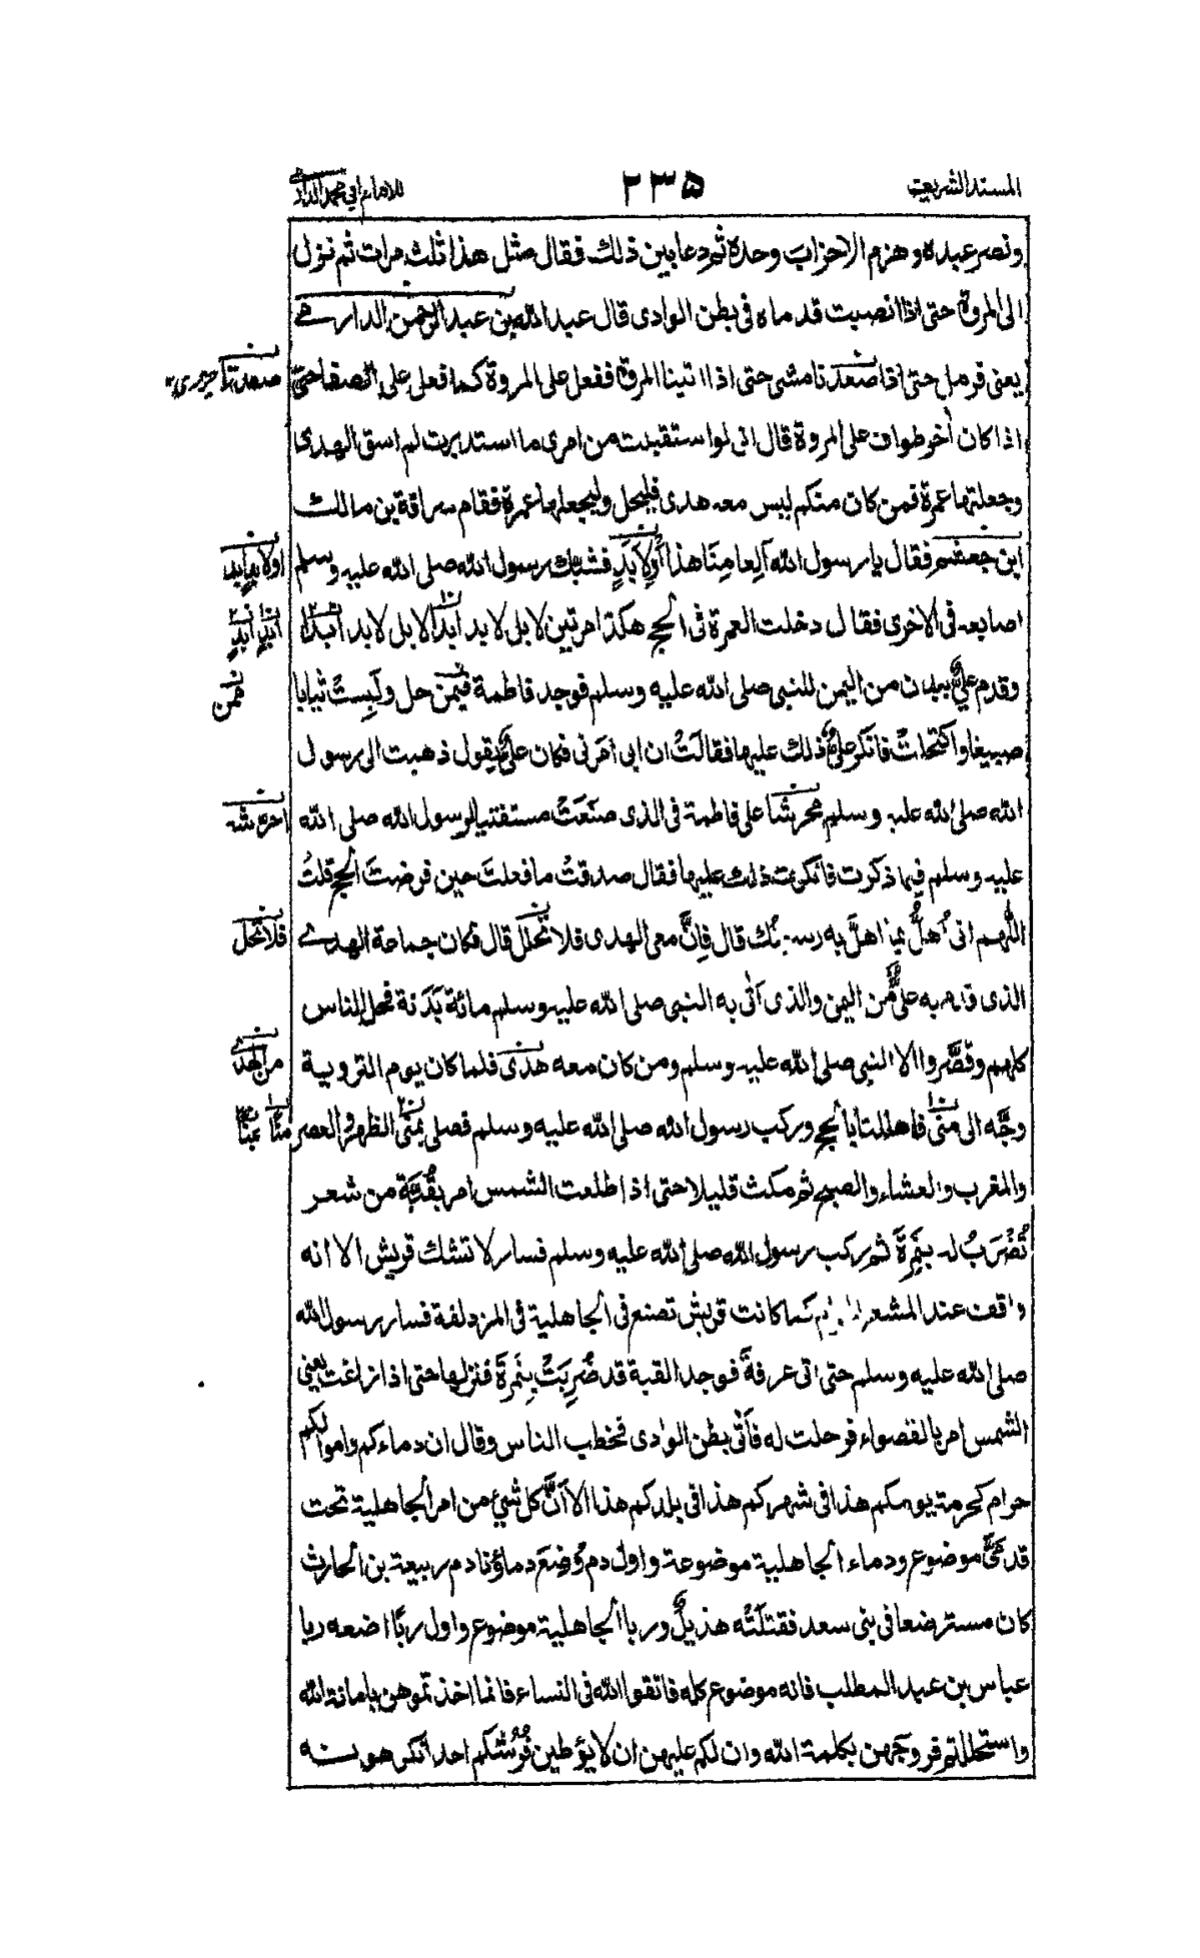 المسند الشريف ۲۳۵ للامام ابي محمد الدارمي
ونصر عبده وهزم الاحزاب وحده ثم دعا بين ذلك فقال مثل هذا ثلث مرات ثم نزل
الى المروة حتى اذا انصبت قدماه في بطن الوادى قال عبد الله بن عبد الرحمن الدارمي
يعنى فرمل حتى اذا صعدنا مشى حتى اذا اتينا المروة ففعل على المروة كما فعل على الصفا حتى
صعدتا
اذا كان آخر طواف على المروة قال انى لو استقبلت من امرى ما استدبرت لم اسق الهدى
وجعلتها عمرة فمن كان منكم ليس معه هدى فليحل وليجعلها عمرة فقام سراقة بن مالك
ابن جعشم فقال يا رسول الله اَلِعامِنَا هذا اَولِاَبَدٍ فشبّك رسول الله صلى الله عليه وسلم
اولابد ابد
اصابعه فى الاخرى فقال دخلت العمرة فى الحج هكذا مرتين لا بل لابد ابدا لا بل لابد ابدا
ابدٍ ابدٍ
وقدم علىٌّ ببدن من اليمن للنبى صلى الله عليه وسلم فوجد فاطمة فيمن حل ولَبِسَتْ ثيابا
ممن
صبيغا واكتحلتْ فانكر علىٌّ ذلك عليها فقالَتْ ان ابى امرنى فكان علىٌّ يقول ذهبت الى رسول
الله صلى الله عليه وسلم محرشا على فاطمة فى الذى صنَعَتْ مستفتيا لرسول الله صلى الله
احرشه
عليه وسلم فيما ذكرت فانكرت ذلك عليها فقال صدقتْ ما فعلتَ حين فرضتَ الحج قلتُ
اللّهم انى اُهلُّ بما اهلَّ به رسولك قال فاِنَّ معى الهدى فلا تحلل قال فكان جماعة الهدے
فلا تحل
الذى قدم به علىٌّ من اليمن والذى اَتٰى به النبى صلى الله عليه وسلم مائة بَدَنة فحل الناس
كلهم وقصَّروا الا النبى صلى الله عليه وسلم ومن كان معه هدى فلما كان يوم التروية
من الهدى
وجَّه الى منًى فاهللنا بالحج وركب رسول الله صلى الله عليه وسلم فصلى بمنًى الظهر والعصر
منًا بمنًا
والمغرب والعشاء والصبح ثم مكث قليلا حتى اذا طلعت الشمس امر بقُبَّة من شعر
تُضْرَبُ له بنَمِرةَ ثم ركب رسول الله صلى الله عليه وسلم فسار لا تشك قريش الا انه
واقف عند المشعر كما كانت قريش تصنع فى الجاهلية فى المزدلفة فسار رسول الله
صلى الله عليه وسلم حتى اتى عرفةَ فوجد القبة قد ضُرِبَتْ بنَمِرةَ فنزلها حتى اذا زاغت يعنى
الشمس امر بالقصواء فرحلت له فاَتٰى بطن الوادى فخطب الناس وقال ان دماءكم واموالكم
حرام كحرمة يومكم هذا فى شهركم هذا فى بلدكم هذا الا اَنَّ كل شئ من امر الجاهلية تحت
قدمىَّ موضوع ودماء الجاهلية موضوعة واول دم وُضِعَ دماؤنا دم ربيعة بن الحارث
كان مسترضعا فى بنى سعد فقتلَتْه هذيلٌ وربا الجاهلية موضوع واول ربًا اضعه ربا
عباس بن عبد المطلب فانه موضوع كله فاتقوا الله فى النساء فانما اخذتموهن بامانة الله
واستحللتم فروجهن بكلمة الله وان لكم عليهن ان لا يؤطين فُرُشكم احدا تكرهونه